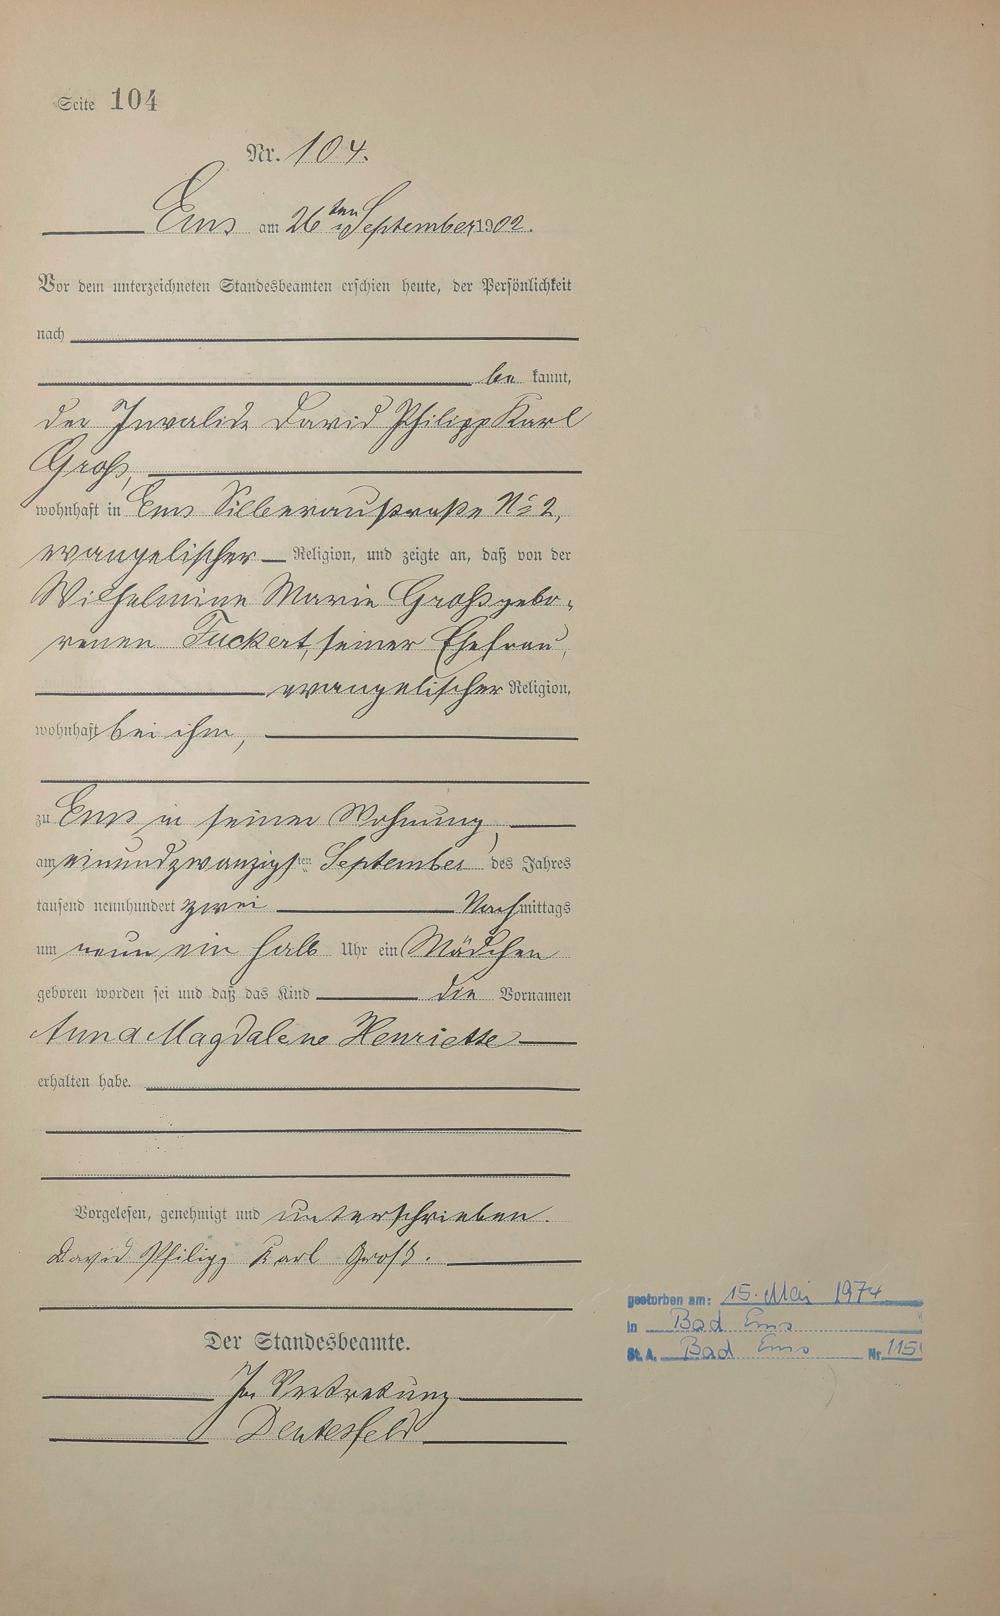 Seite 104
Nr. 104.
Ems am 26ten September 1902.
Vor dem unterzeichneten Standesbeamten erschien heute, der Persönlichkeit
nach
be kannt,
der Invalide David Philipp Karl
Groß,
wohnhaft in Ems Silberaustraße No 2,
evangelischer Religion, und zeigte an, daß von der
Wilhelmine Marie Groß gebo-
renen Fuckert, seiner Ehefrau,
evangelischer Religion,
wohnhaft bei ihm,
zu Ems in seiner Wohnung,
am einundzwanzigsten September des Jahres
tausend neunhundert zwei Nachmittags
um neun ein halb Uhr ein Mädchen
geboren worden sei und daß das Kind die Vornamen
Anna Magdalene Henriette
erhalten habe.
Vorgelesen, genehmigt und unterschrieben.
David Philipp Karl Groß.
Der Standesbeamte.
In Vertretung
gestorben am: 15. Mai 1974
in Bad Ems
St. A. Bad Ems Nr. 115